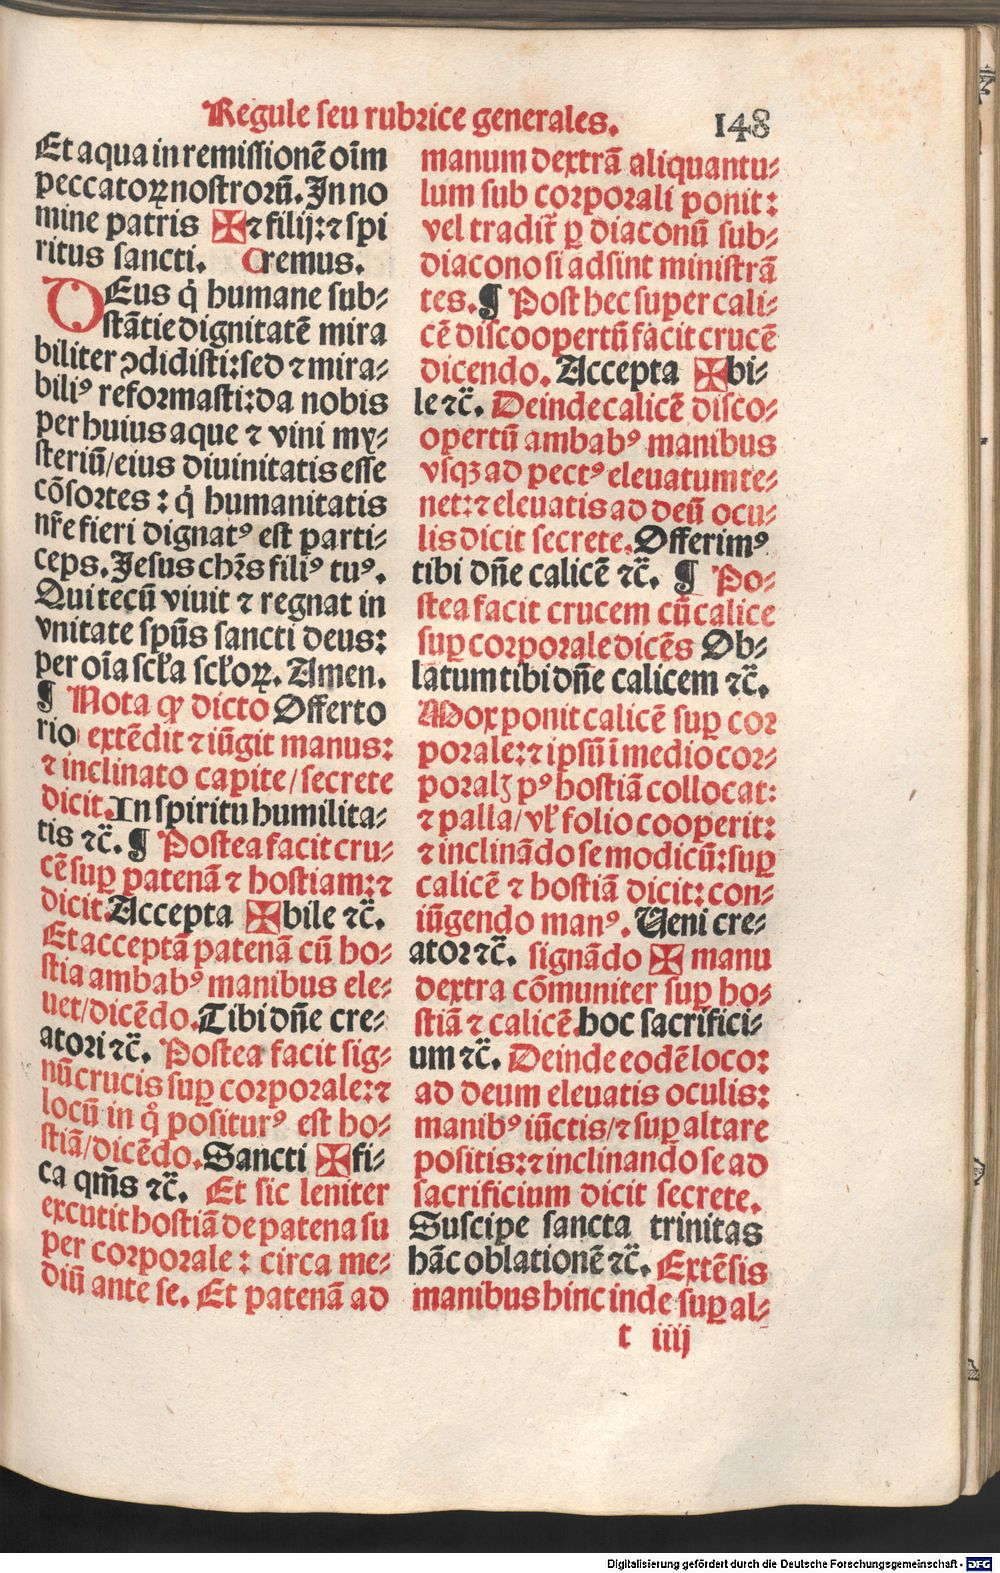 Regule seu rubrice generales. 148
Et aqua in remissionē oīm
peccatoꝝ nostrorū. In no
mine patris ✠ ⁊ filij: ⁊ spi
ritus sancti. Oremus.
DEus q̇ humane sub⸗
stātie dignitatē mira
biliter ꝯdidisti: sed ⁊ mira⸗
biliꝰ reformasti: da nobis
per huius aque ⁊ vini my⸗
steriū/ eius diuinitatis esse
cōsortes: q̇ humanitatis
nr̄e fieri dignatꝰ est parti⸗
ceps. Jesus chr̄s filiꝰ tuꝰ.
Qui tecū viuit ⁊ regnat in
vnitate spūs sancti deus:
per oīa scľa scľoꝝ. Amen.
¶ Nota ꝙ dicto Offerto
rio extēdit ⁊ iūgit manus:
⁊ inclinato capite/ secrete
dicit. In spiritu humilita⸗
tis ⁊c̄. ¶ Postea facit cru⸗
cē suꝑ patenā ⁊ hostiam: ⁊
dicit. Accepta ✠ bile ⁊c̄.
Et acceptā patenā cū ho⸗
stia ambabꝰ manibus ele⸗
uet/ dicēdo. Tibi dn̄e cre⸗
atori ⁊c̄. Postea facit sig⸗
nū crucis suꝑ corporale: ⁊
locū in q̊ positurꝰ est ho⸗
stiā/ dicēdo. Sancti ✠ fi⸗
ca qm̄s ⁊c̄. Et sic leniter
excutit hostiā de patena su
per corporale: circa me⸗
diū ante se. Et patenā ad
manum dextrā aliquantu⸗
lum sub corporali ponit:
vel tradit̄ ꝑ diaconū sub⸗
diacono si adsint ministrā
tes. ¶ Post hec super cali⸗
cē discoopertū facit crucē
dicendo. Accepta ✠ bi⸗
le ⁊c̄. Deinde calicē disco⸗
opertū ambabꝰ manibus
vsqꝫ ad pectꝰ eleuatum te⸗
net: ⁊ eleuatis ad deū ocu⸗
lis dicit secrete. Offerimꝰ
tibi dn̄e calicē ⁊c̄. ¶ Po⸗
stea facit crucem cū calice
suꝑ corporale dicēs Ob⸗
latum tibi dn̄e calicem ⁊c̄.
Mox ponit calicē suꝑ cor
porale: ⁊ ipsū ī medio cor⸗
poralꝫ pꝰ hostiā collocat:
⁊ palla/ vľ folio cooperit:
⁊ inclināndo se modicū: suꝑ
calicē ⁊ hostiā dicit: con⸗
iūgendo manꝰ. Ueni cre⸗
ator ⁊c̄. signādo ✠ manu
dextra cōmuniter suꝑ ho⸗
stiā ⁊ calicē. hoc sacrifici⸗
um ⁊c̄. Deinde eodē loco:
ad deum eleuatis oculis:
manibꝰ iūctis/ ⁊ suꝑ altare
positis: ⁊ inclinando se ad
sacrificium dicit secrete.
Suscipe sancta trinitas
hāc oblationē ⁊c̄. Extēsis
manibus hinc inde suꝑ al⸗
t iiij
Digitalisierung gefördert durch die Deutsche Forschungsgemeinschaft - DFG